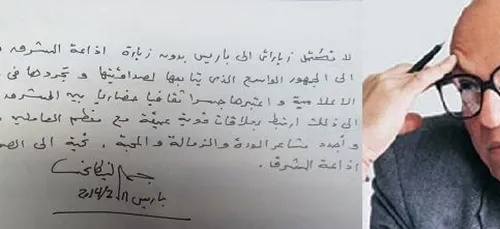 لا تكتمل زياراتي الى باريس بدون زيارة اذاعة المشرق
الى الجمهور الواسع الذي يتابعها لصداقيتها و تجردها في
الاعلامية و اعتبرها جسرا ثقافيا حضاريا بين المشرق
الى ذلك ارتبط بعلاقات قوية عميقة مع معظم العاملين
و أجدد مشاعر المودة والزمالة و المحبة . تحية الى
اذاعة الشرق .
باريس 2014/2